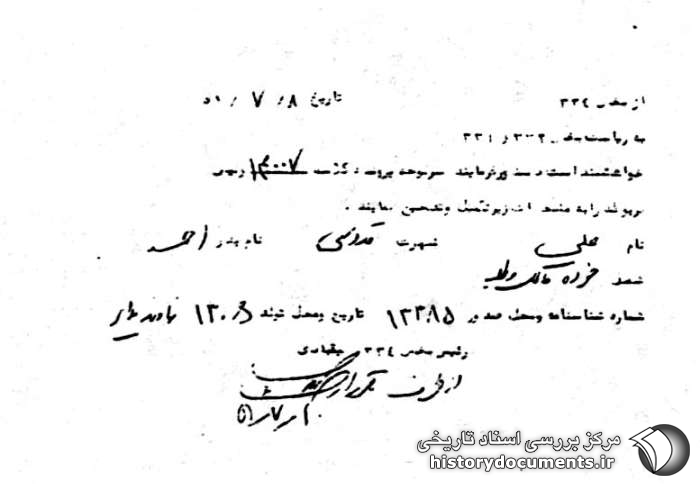 از بخش ۳۳۴ تاریخ ۸ / ۷ / ۵۱
به ریاست بخش ۳۳۲ و ۳۳۱
خواهشمند است دستور فرمایند سرسوحه پرونده کلاسه ۱۳۰۰۷
مربوطه را به مشخصات زیر تکمیل و تعیین نمایند .
نام علی شهرت قدوسی نام پدر احمد
شغل خرده مالک و طلبه
شماره شناسنامه و محل صدور ۱۳۳۸۵ تاریخ و محل تولد ۱۳۰۶ نهاوند ملایر
رئیس بخش ۳۳۴ . بیقیادی
از طرف
مرکز بررسی اسناد تاریخی
historydocuments.ir